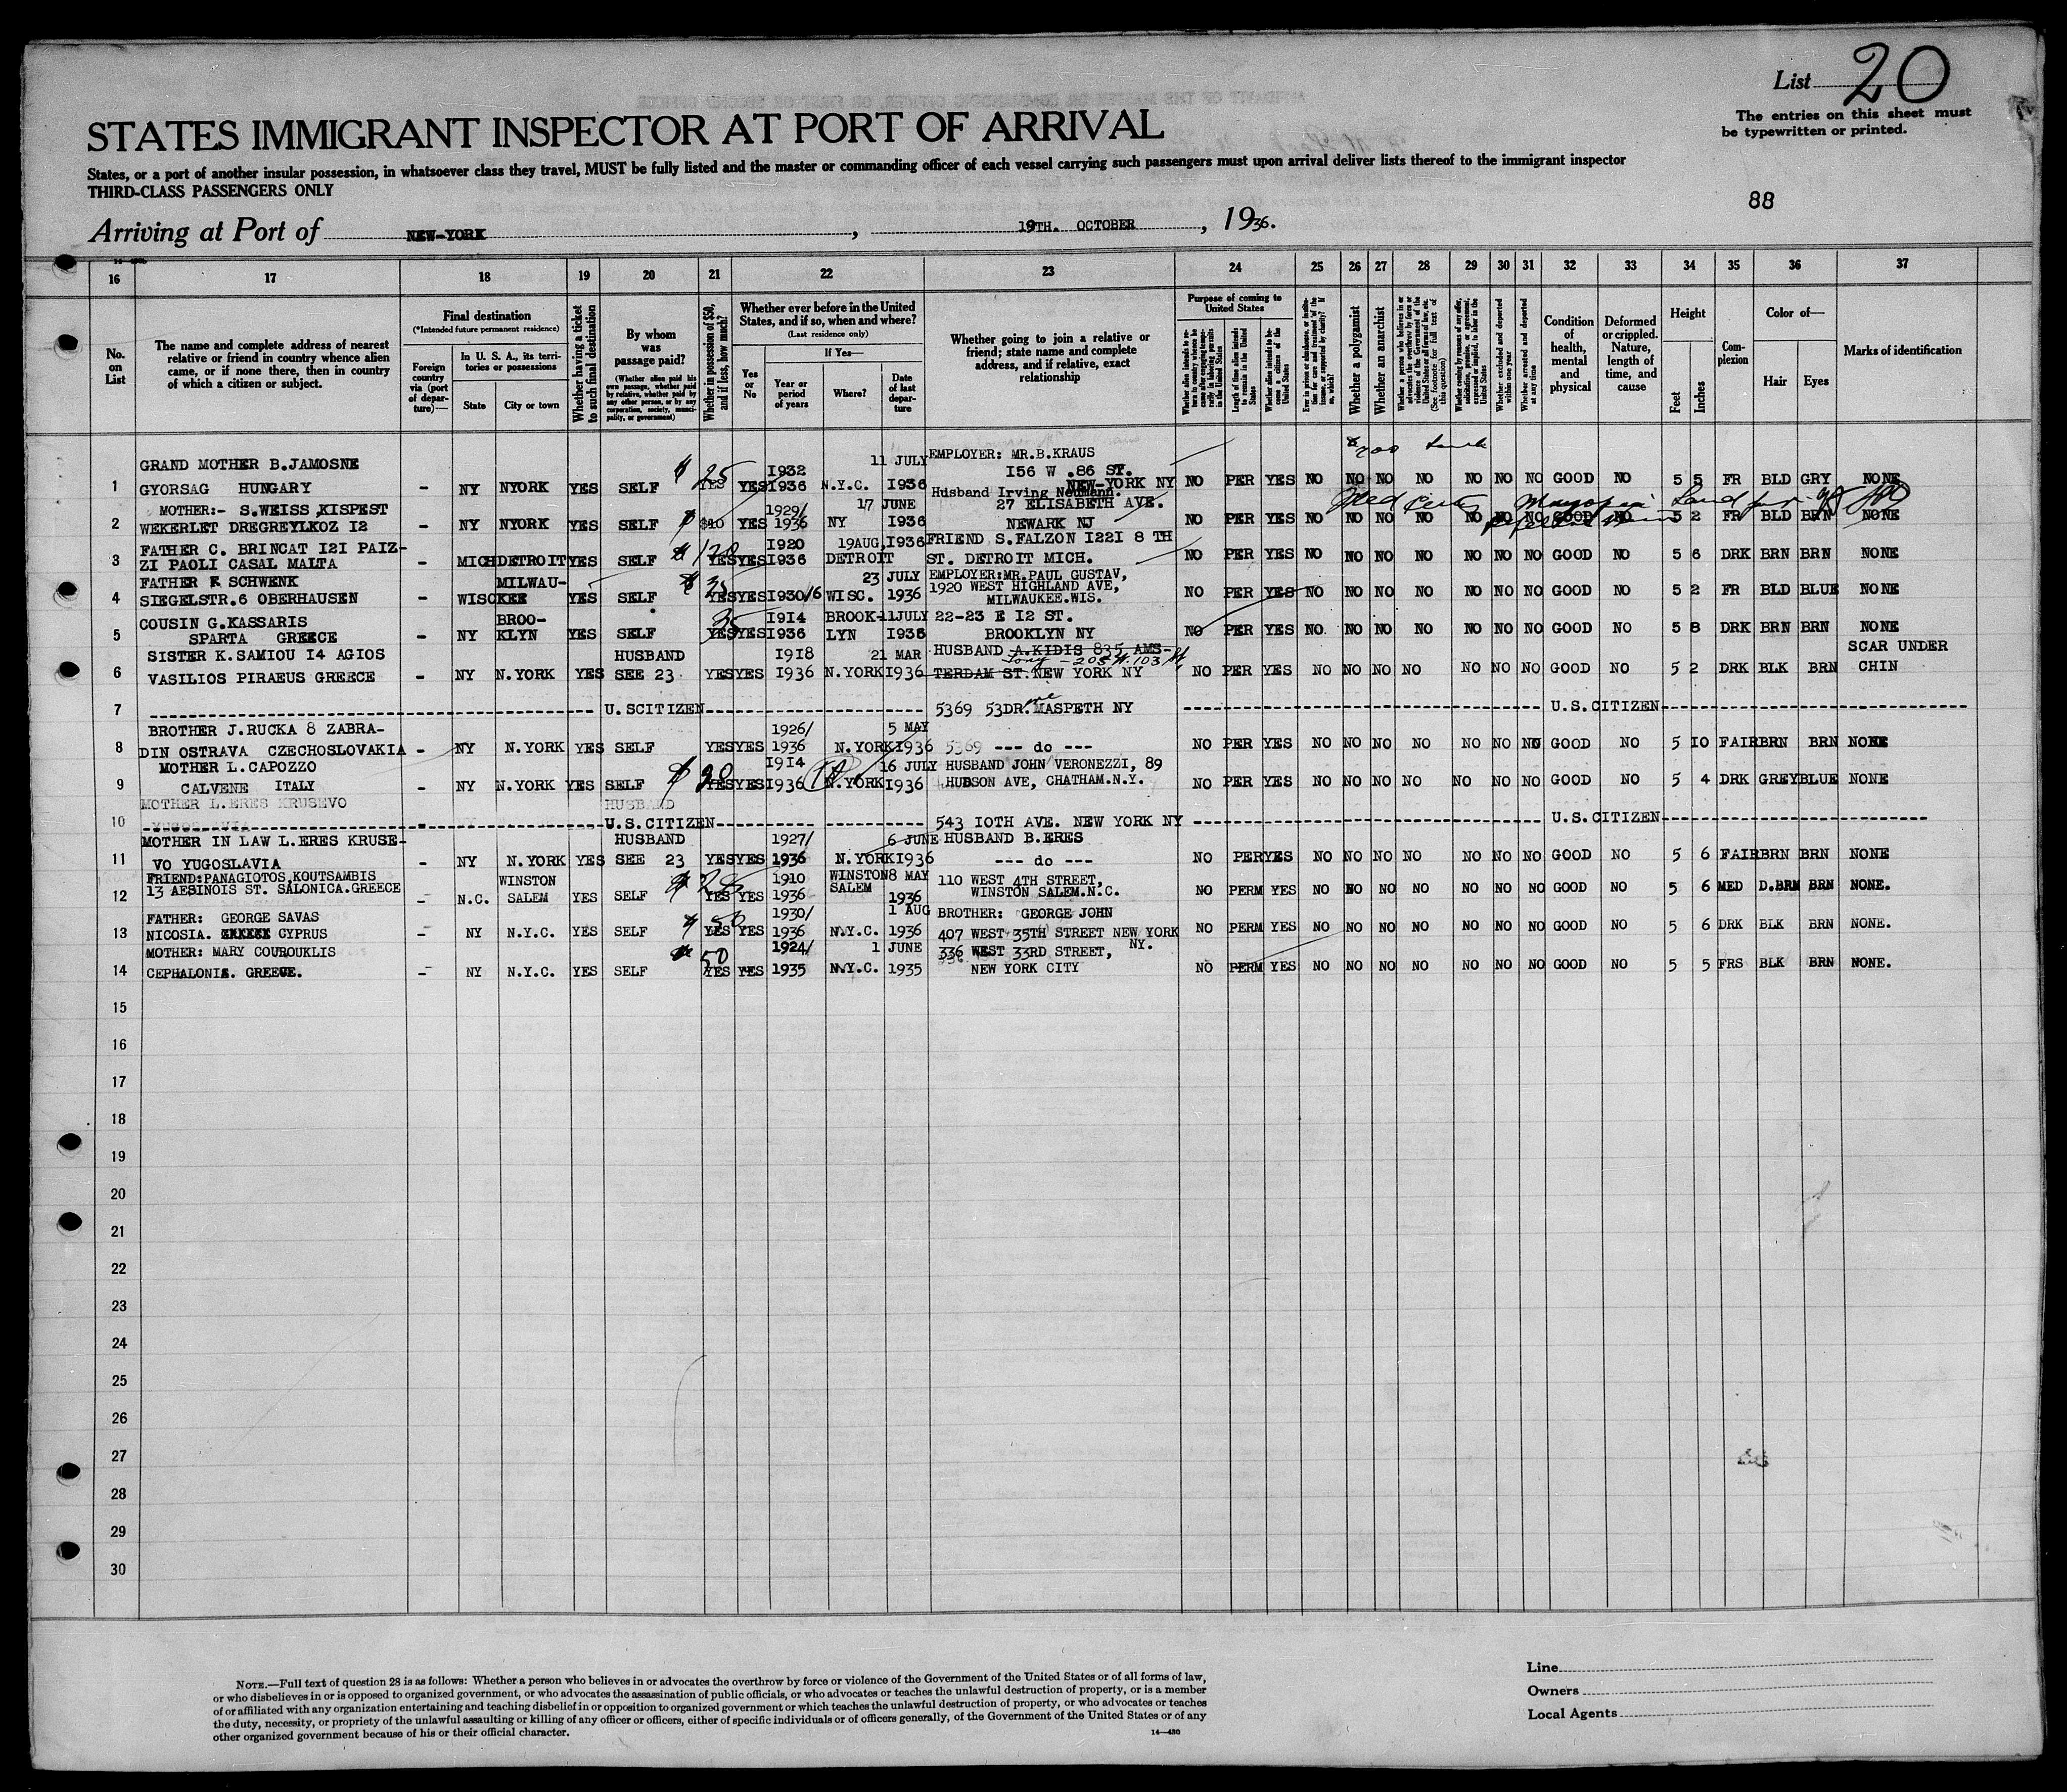 List 20
The entries on this sheet must
be typewritten or printed.
STATES IMMIGRANT INSPECTOR AT PORT OF ARRIVAL
States, or a port of another insular possession, in whatsoever class they travel, MUST be fully listed and the master or commanding officer of each vessel carrying such passengers must upon arrival deliver lists thereof to the immigrant inspector
THIRD-CLASS PASSENGERS ONLY
88
Arriving at Port of NEW-YORK, 19TH. OCTOBER, 1936.
16 17 18 19 20 21 22 23 24 25 26 27 28 29 30 31 32 33 34 35 36 37
No. on List
The name and complete address of nearest
relative or friend in country whence alien
came, or if none there, then in country
of which a citizen or subject.
Final destination
(*Intended future permanent residence)
Foreign country via (port of departure)—
In U. S. A., its territories or possessions
State
City or town
Whether having a ticket to such final destination
By whom was passage paid?
(Whether alien paid his own passage, whether paid by relative, whether paid by any other person, or by any corporation, society, municipality, or government)
Whether in possession of $50, and if less, how much?
Whether ever before in the United
States, and if so, when and where?
(Last residence only)
If Yes—
Yes or No
Year or period of years
Where?
Date of last departure
Whether going to join a relative or
friend; state name and complete
address, and if relative, exact
relationship
Purpose of coming to United States
Length of time alien intends to remain in the United States
Whether alien intends to become a citizen of the United States
Whether a polygamist
Whether an anarchist
Whether arrested and deported at any time
Condition of health, mental and physical
Deformed or crippled. Nature, length of time, and cause
Height
Feet
Inches
Complexion
Color of—
Hair
Eyes
Marks of identification
$200
GRAND MOTHER B.JAMOSNE $ 25 I932 11 JULY EMPLOYER: MR.B.KRAUS
I56 W .86 ST.
1 GYORSAG HUNGARY - NY NYORK YES SELF YES YES I936 N.Y.C. I936 NEW-YORK NY NO PER YES NO NO NO NO NO NO NO GOOD NO 5 5 FR BLD GRY NONE
Husband Irving Neumann.
MOTHER:- S.WEISS,KISPEST 1929/ 17 JUNE 27 ELISABETH AVE.
2 WEKERLET DREGREYLKOZ I2 - NY NYORK YES SELF $40 YES 1936 NY I936 NEWARK NJ NO PER YES NO NO NO NO NO NO NO GOOD NO 5 2 FR BLD BRN NONE
FATHER C. BRINCAT I2I PAIZ- $ 120 I920 19AUG, I936 FRIEND S.FALZON I22I 8 TH
3 ZI PAOLI CASAL MALTA - MICH DETROIT YES SELF YES YES I936 DETROIT ST. DETROIT MICH. NO PER YES NO NO NO NO NO NO NO GOOD NO 5 6 DRK BRN BRN NONE
FATHER F. SCHWENK MILWAU- $ 23 JULY EMPLOYER:MR.PAUL GUSTAV,
1920 WEST HIGHLAND AVE,
4 SIEGELSTR.6 OBERHAUSEN - WISC KEE YES SELF YES YES I930/6 WISC. 1936 MILWAUKEE.WIS. NO PER YES NO NO NO NO NO NO NO GOOD NO 5 2 FR BLD BLUE NONE
COUSIN G.KASSARIS BROO- 35 I9I4 BROOK- 11JULY 22-23 E I2 ST.
5 SPARTA GREECE - NY KLYN YES SELF YES YES I936 LYN I936 BROOKLYN NY NO PER YES NO. NO NO NO NO NO NO GOOD NO 5 8 DRK BRN BRN NONE
SISTER K.SAMIOU I4 AGIOS HUSBAND I9I8 21 MAR HUSBAND A.KIDIS 835 AMS- SCAR UNDER
Tony - 205 W. 103 St,
6 VASILIOS PIRAEUS GREECE - NY N.YORK YES SEE 23 YES YES I936 N.YORK I936 TERDAM ST. NEW YORK NY NO PER YES NO NO NO NO NO NO NO GOOD NO 5 2 DRK BLK BRN CHIN
7 U.SCITIZEN 5369 53DR. MASPETH NY U.S.CITIZEN
ave
BROTHER J.RUCKA 8 ZABRA- 1926/ 5 MAY
8 DIN OSTRAVA CZECHOSLOVAKIA - NY N.YORK YES SELF YES YES 1936 N.YORK I936 5369 --- do --- NO PER YES NO NO NO NO NO NO NO GOOD NO 5 IO FAIR BRN BRN NONE
MOTHER L.CAPOZZO $ I9I4 16 JULY HUSBAND JOHN VERONEZZI, 89
9 CALVENE ITALY - NY N.YORK YES SELF YES YES I936 N.YORK I936 HUDSON AVE, CHATHAM.N.Y. NO PER YES NO NO NO NO NO NO NO GOOD NO 5 4 DRK GREY BLUE NONE
MOTHER L.ERES KRUSEVO HUSBAND
10 U.S.CITIZEN 543 IOTH AVE. NEW YORK NY U.S.CITIZEN
MOTHER IN LAW L.ERES KRUSE- HUSBAND 1927/ 6 JUNE HUSBAND B.ERES
11 VO YUGOSLAVIA - NY N.YORK YES SEE 23 YES YES 1936 N.YORK I936 --- do --- NO PER YES NO NO NO NO NO NO NO GOOD NO 5 6 FAIR BRN BRN NONE
FRIEND:PANAGIOTOS,KOUTSAMBIS WINSTON $ 1910 WINSTON 8 MAY 110 WEST 4TH STREET,
13 AESINOIS ST. SALONICA.GREECE
12 - N.C. SALEM YES SELF YES YES 1936 SALEM 1936 WINSTON SALEM.N.C. NO PERM YES NO NO NO NO NO NO NO GOOD NO 5 6 MED D.BRN BRN NONE.
FATHER: GEORGE SAVAS $ 50 1930/ 1 AUG BROTHER: GEORGE JOHN
13 NICOSIA. CYPRUS - NY N.Y.C. YES SELF YES YES 1936 N.Y.C. 1936 407 WEST 35TH STREET NEW YORK NY. NO PERM YES NO NO NO NO NO NO NO GOOD NO 5 6 DRK BLK BRN NONE.
MOTHER: MARY COUROUKLIS $ 50 1924/ 1 JUNE 336 WEST 33RD STREET,
14 CEPHALONIA. GREECE. - NY N.Y.C. YES SELF YES YES 1935 N.Y.C. 1935 NEW YORK CITY NO PERM YES NO NO NO NO NO NO NO GOOD NO 5 5 FRS BLK BRN NONE.
15
16
17
18
19
20
21
22
23
24
25
26
27
28
29
30
NOTE.—Full text of question 28 is as follows: Whether a person who believes in or advocates the overthrow by force or violence of the Government of the United States or of all forms of law,
or who disbelieves in or is opposed to organized government, or who advocates the assassination of public officials, or who advocates or teaches the unlawful destruction of property, or is a member
of or affiliated with any organization entertaining and teaching disbelief in or opposition to organized government or which teaches the unlawful destruction of property, or who advocates or teaches
the duty, necessity, or propriety of the unlawful assaulting or killing of any officer or officers, either of specific individuals or of officers generally, of the Government of the United States or of any
other organized government because of his or their official character.
14—430
Line
Owners
Local Agents